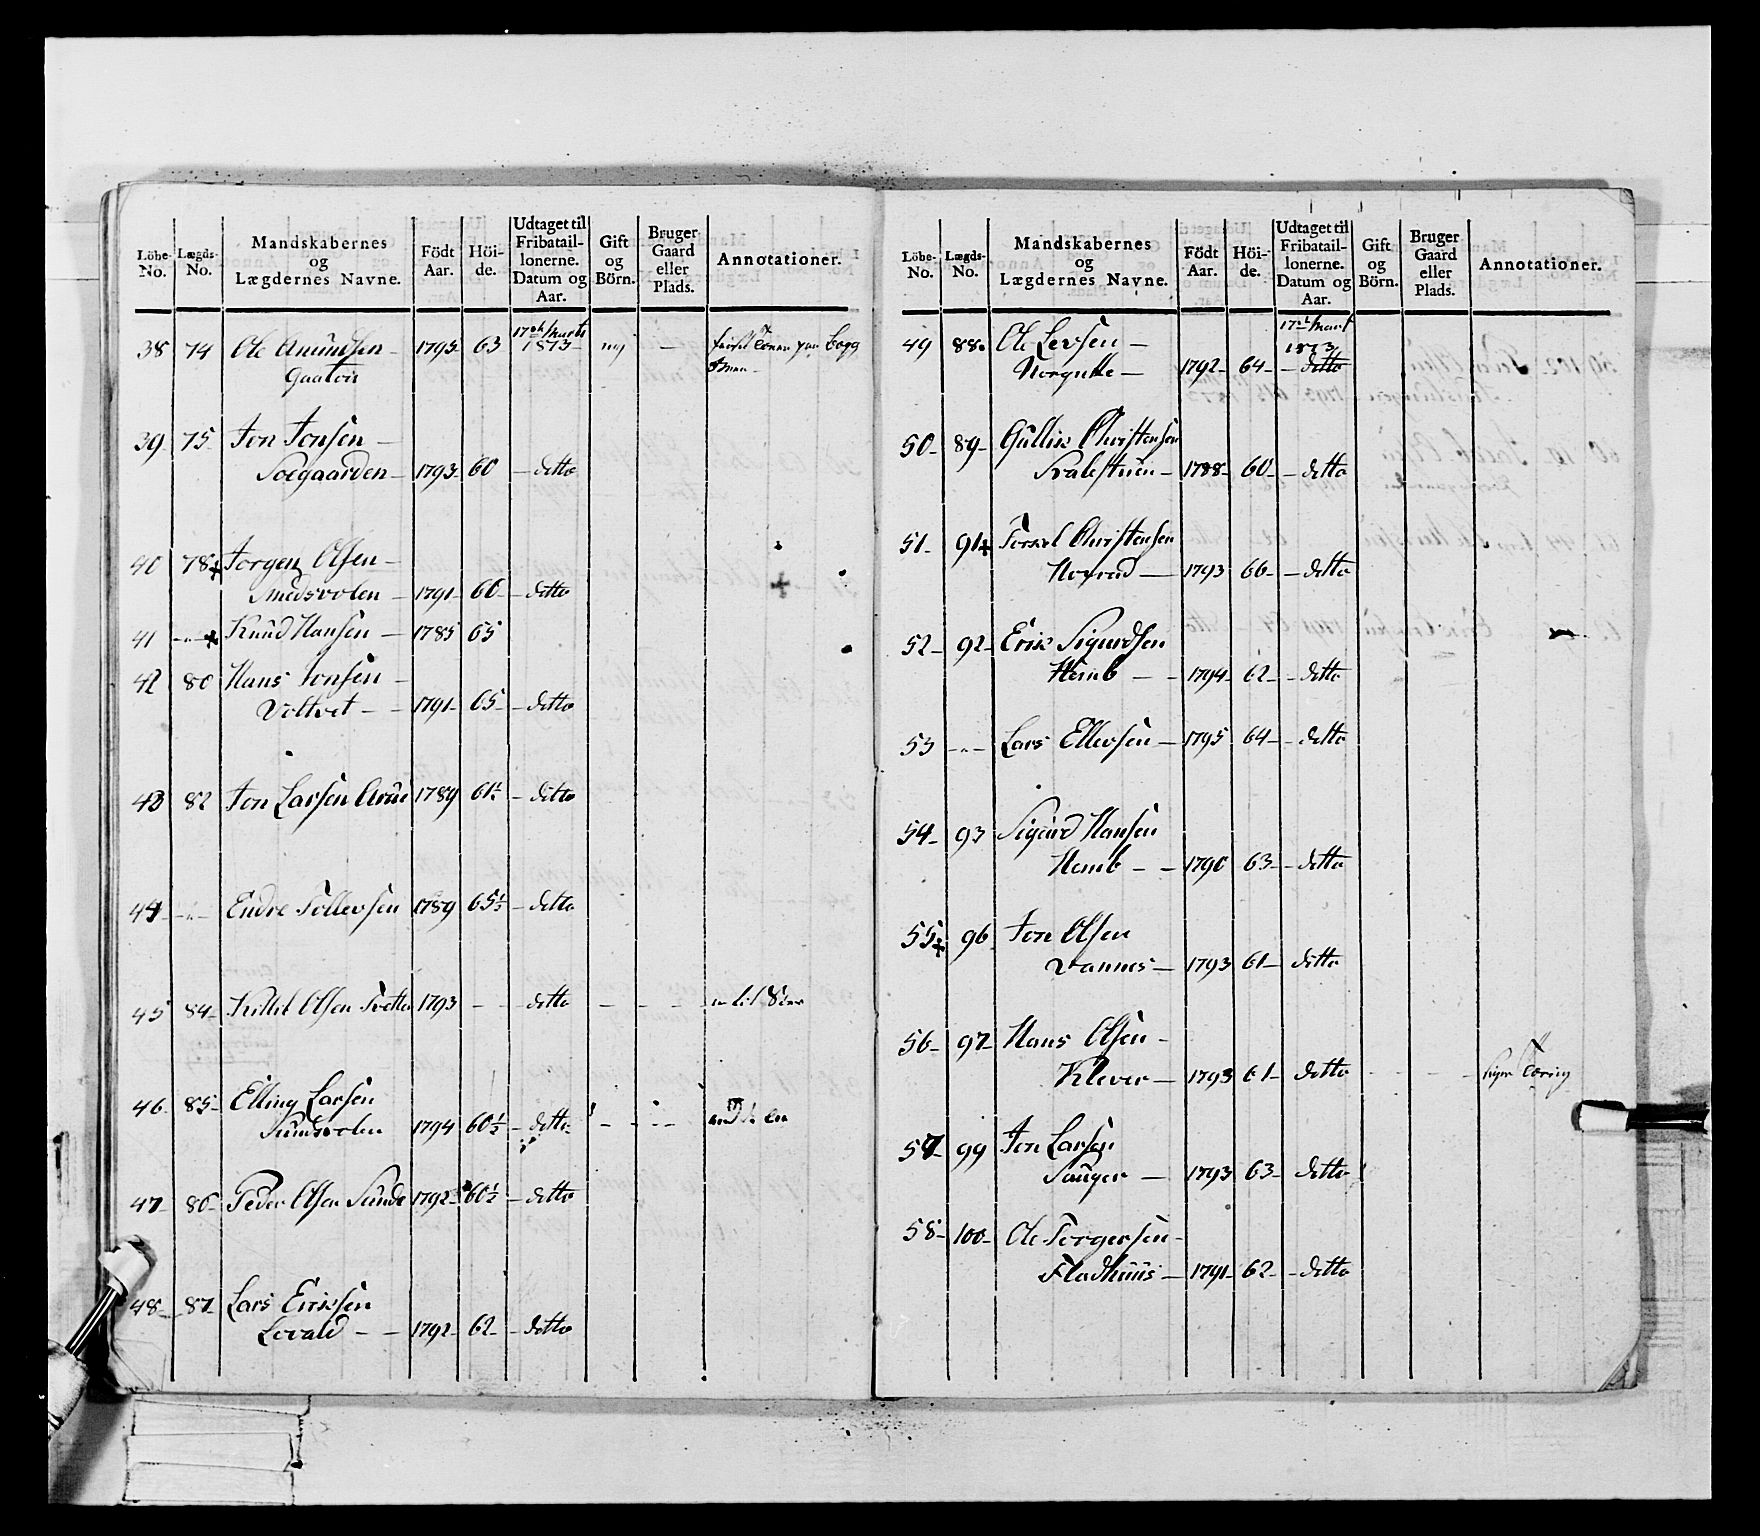 Löbe- No. Lægds- No. Mandskabernes og Lægdernes Navne. Födt Aar. Höi- de. Udtaget til Fribatail- lonerne. Datum og Aar. Gift og Börn. Bruger Gaard eller Plads. Annotationer.
17de Marts
38 74 Ole Amundsen 1793 63 1813
39 75 Jon Jonsen
Soegaarden 1793 60 ditto
40 78 Jorgen Olsen
Smedsvolen 1791 60 ditto
41 Knud Hansen 1785 65
42 80 Hans Jonsen
Voltvet 1791 65 ditto
43 82 Jon Larsen 1789 61½ ditto
44 Endre Tollevsen 1789 65½ ditto
45 84 Kittil Olsen 1793 ditto
46 85 Elling Larsen
1794 60½ ditto
47 86 Peder Olsen Sunde 1792 60½ ditto
48 87 Lars Eriksen
1792 62 ditto
Löbe- No. Lægds- No. Mandskabernes og Lægdernes Navne. Födt Aar. Höi- de. Udtaget til Fribatail- lonerne. Datum og Aar. Gift og Börn. Bruger Gaard eller Plads. Annotationer.
49 88 Ole
1813
1792 64 ditto
50 89 Gullik Christensen
1788 60 ditto
51 91 Christensen
1793 66 ditto
52 92 Erik Sigurdsen
Hemb 1794 62 ditto
53 Lars Ellevsen 1795 64 ditto
54 93 Sigurd Hansen
Hemb 1790 63 ditto
55 96 Jon Olsen
Vannes 1793 61 ditto
56 97 Hans Olsen
Klever 1793 61 ditto
57 99 Jon Larsen
Sauger 1793 63 ditto
58 100 Ole Torgersen
Fladhuus 1791 62 ditto